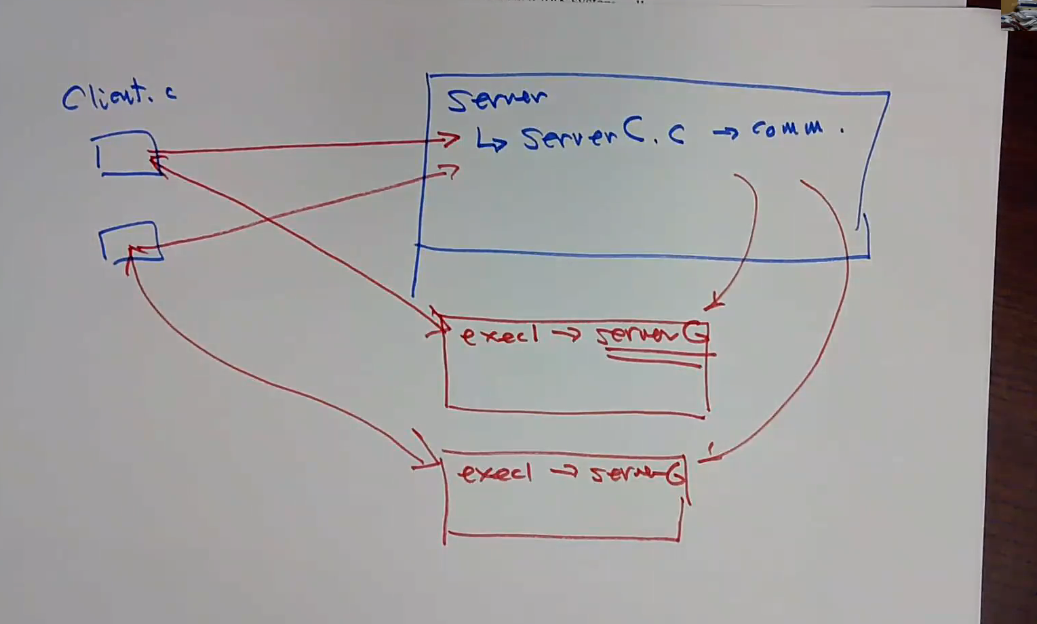 Client.c
Server
↳ serverC.c → comm.
execl → serverG
execl → serverG